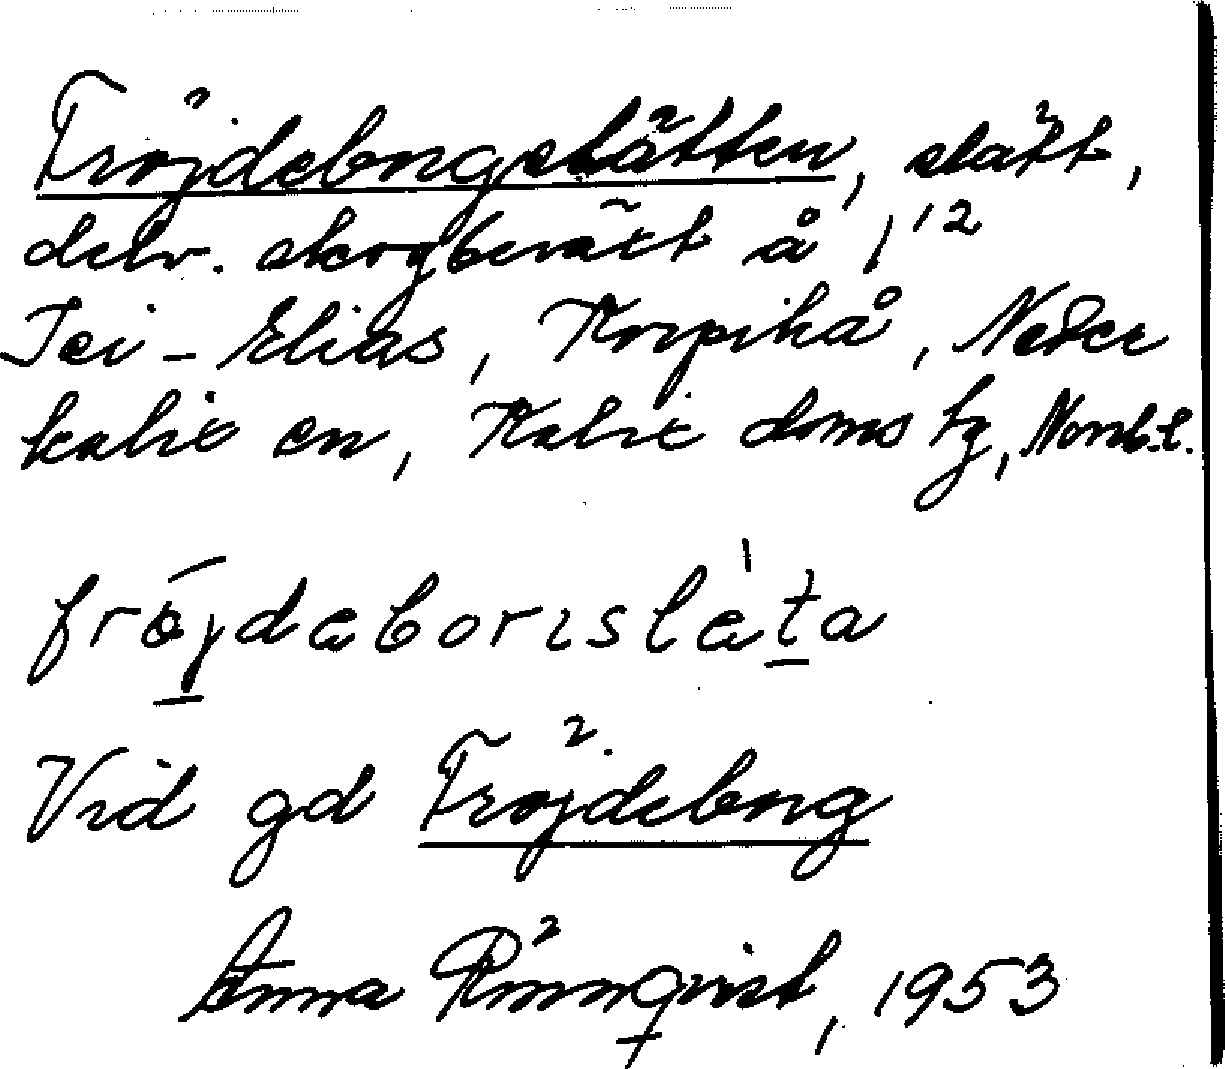 Fröjdeborgslätten, slätt,
delv. skogbeväxt å 1¹²
Isi-Elias, Korpikå, Neder
kalix sn, Kalix doms tg, Norrb. l.
fröjdəborıslɛ̀ta
Vid gd Fröjdeborg
Anna Rönnqvist, 1953